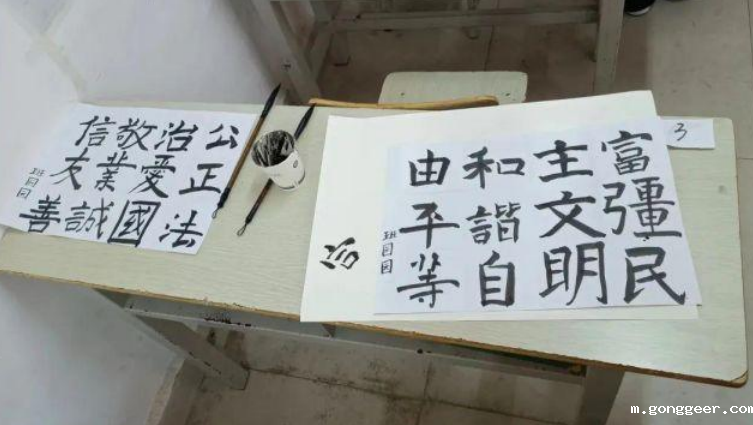 富彊民
主文明
和諧自
由平等
班园园
公正法
治愛國
敬業誠
信友善
班园园
3
m.gonggeer.com